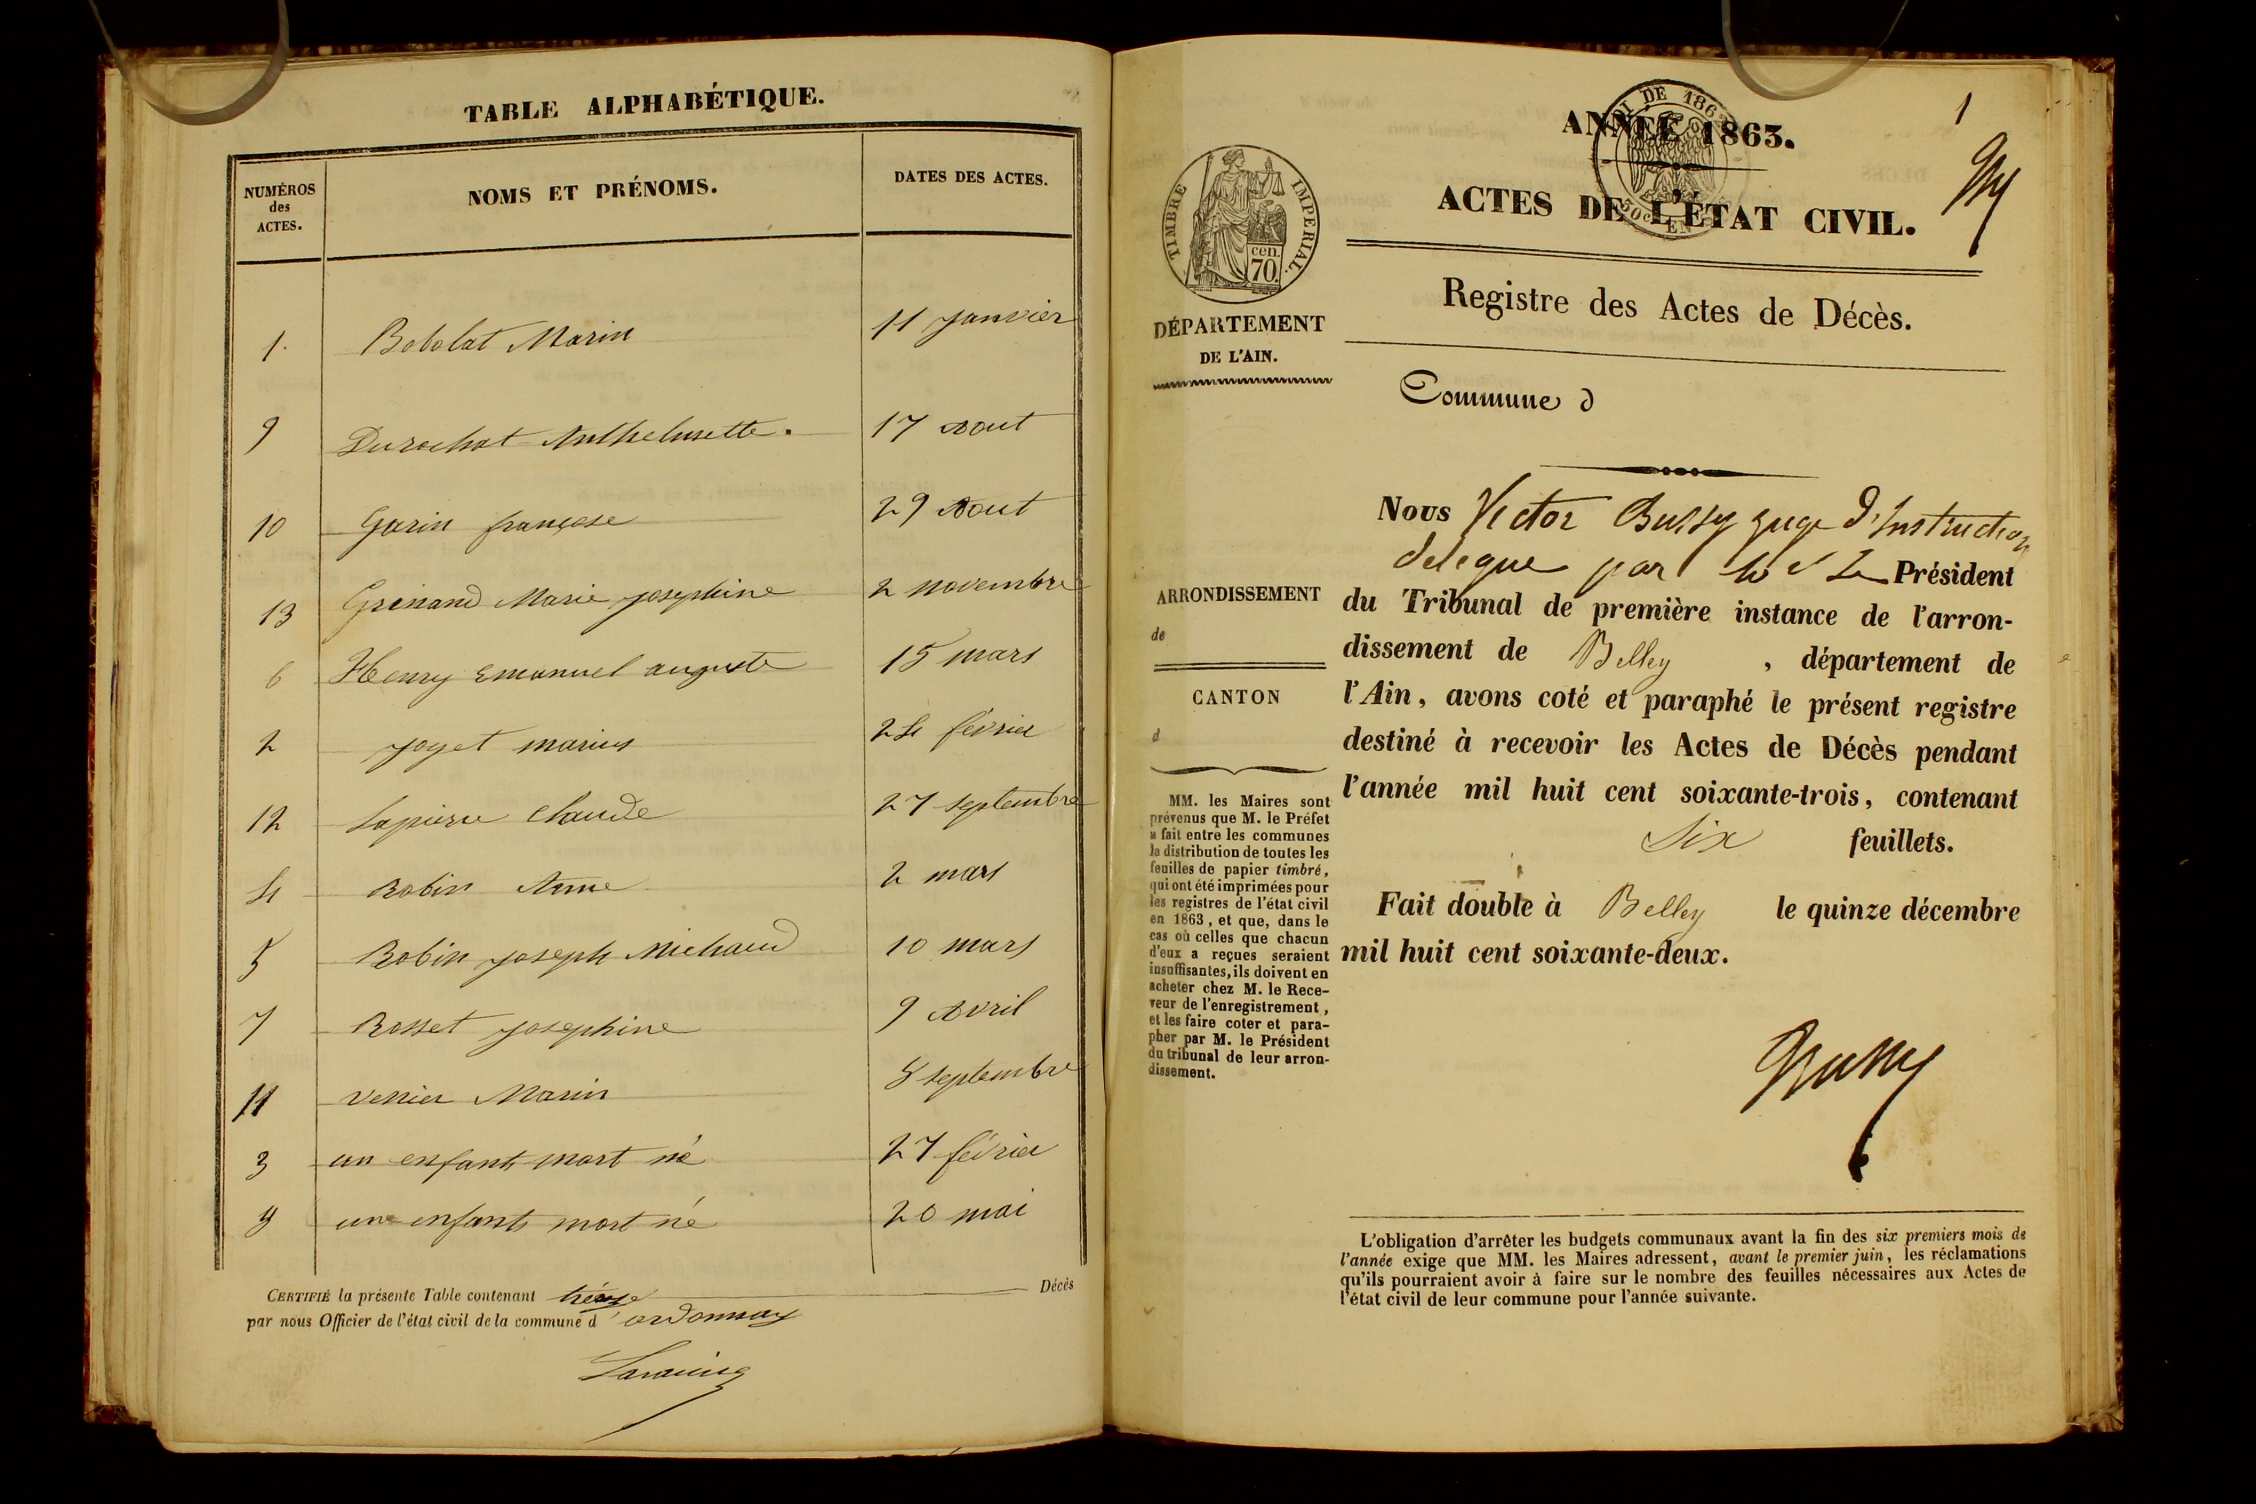 TABLE ALPHABÉTIQUE.
NUMÉROS
des
ACTES.
NOMS ET PRÉNOMS.
DATES DES ACTES.
1. Bobolat Marin 11 janvier
9 Durochat Anthelmette. 17 Aout
10 Garin françose 29 Aout
13 Grinand Marie josephine 2 novembre
6 Henry Emanuel auguste 15 mars
2 joyet marius 24 février
12 Lapierre Claude 27 septembre
4 Robin Anne 2 mars
5 Robin joseph Michaud 10 mars
7 Rosset josephine 9 Avril
11 Marin 8 septembre
3 un enfant mort né 27 février
8 un enfant mort né 20 mai
CERTIFIÉ la présente Table contenant treize Décès
par nous Officier de l'état civil de la commune d'ordonnaz
1
LOI DE 1862
ANNÉE 1863.
50c EN
ACTES DE L'ÉTAT CIVIL.
Registre des Actes de Décès.
TIMBRE IMPÉRIAL.
cen.
70.
DÉPARTEMENT
DE L'AIN.
Commune d
ARRONDISSEMENT
de
CANTON
d
MM. les Maires sont
prévenus que M. le Préfet
a fait entre les communes
la distribution de toutes les
feuilles de papier timbré,
qui ont été imprimées pour
les registres de l'état civil
en 1863, et que, dans le
cas où celles que chacun
d'eux a reçues seraient
insuffisantes, ils doivent en
acheter chez M. le Rece-
veur de l'enregistrement,
et les faire coter et para-
pher par M. le Président
du tribunal de leur arron-
dissement.
Nous Victor Bussy juge d'Instruction
delegue par Le Président
du Tribunal de première instance de l'arron-
dissement de Belley, département de
l'Ain, avons coté et paraphé le présent registre
destiné à recevoir les Actes de Décès pendant
l'année mil huit cent soixante-trois, contenant
Six feuillets.
Fait double à Belley le quinze décembre
mil huit cent soixante-deux.
Bussy
L'obligation d'arrêter les budgets communaux avant la fin des six premiers mois de
l'année exige que MM. les Maires adressent, avant le premier juin, les réclamations
qu'ils pourraient avoir à faire sur le nombre des feuilles nécessaires aux Actes de
l'état civil de leur commune pour l'année suivante.